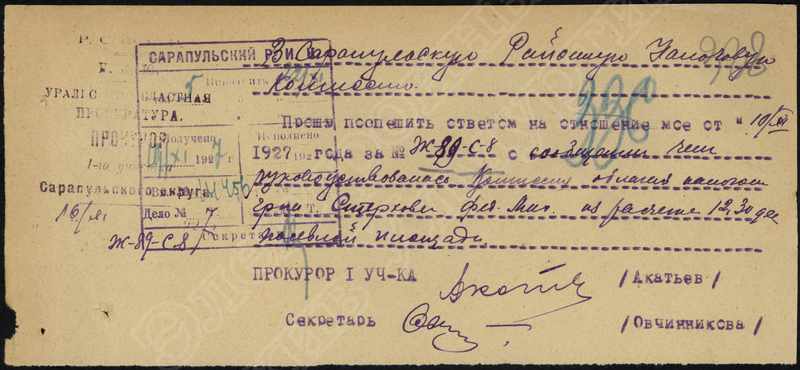 УРАЛ
ОБЛАСТНАЯ
ПРОКУРАТУРА.
ПРОКУРОР
1-го
Сарапульского округа
16/XI
Ж-89-С-8/
САРАПУЛЬСКИЙ Р.И.К.
Получено
Исполнено
14/XI 1927 г.
192
Дело № 7
Секрет
В Сарапульскую Районную Налоговую
Комиссию.
Прошу поспешить ответом на отношение мое от "10/XI
1927 года за № Ж-89-С-8 с сообщением чем
руководствовалась Комиссия облагая налогом
гр-на из расчета 12,30 дес
посевной площади.
ПРОКУРОР I УЧ-КА
/Акатьев/
Секретарь
/Овчинникова/